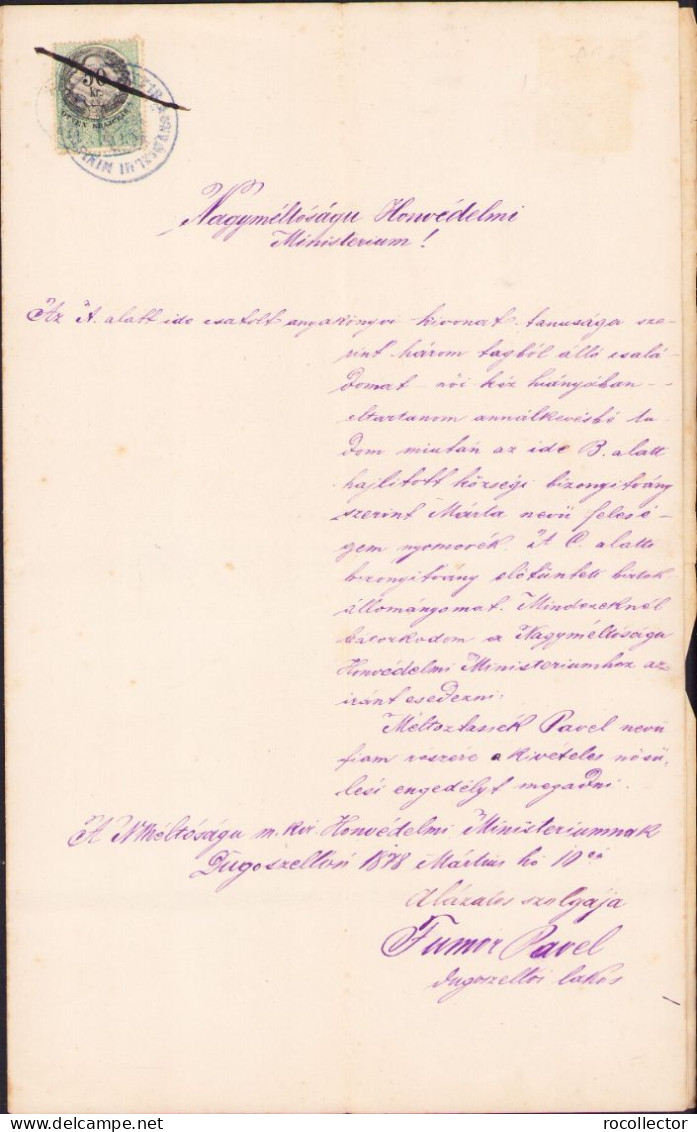 50
kr.
ÖTVEN KRAJCZÁR
Nagyméltóságu Honvédelmi
Ministerium!
Az A. alatt ide csatolt anyakönyvi kivonat tanusága sze-
rint három tagból álló csalá-
domat - női kéz hiányában -
eltartanom annálkevésbé tu-
dom miután az ide B. alatt
hajlitott községi bizonyitvány
szerint Márta nevü felesé-
gem nyomorék. A C. alatti
bizonyitvány előtünteti birtok
állományomat. Mindezeknél
bátorkodom a Nagyméltóságu
Honvédelmi Ministeriumhoz az
iránt esedezni:
Méltóztassék Pavel nevü
fiam részére a kivételes nősü-
lési engedélyt megadni.
A NMéltóságu m. kir. Honvédelmi Ministeriumnak
1878 Mártius hó 10én
Alázatos szolgája
Pavel
lakós
delcampe.net
rocollector